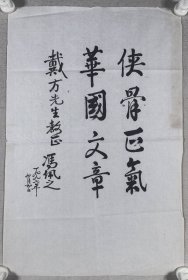 侠骨正氣
華國文章
戴方先生教正
馮佩之
一九九一年